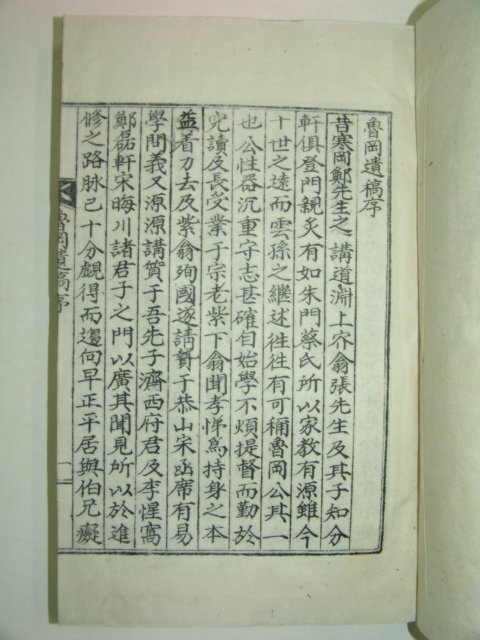 魯岡遺稿序
昔寒岡鄭先生之講道淵上㝏翁張先生及其子知分
軒俱登門親炙有如朱門蔡氏所以家教有源雖今
十世之遠而雲孫之繼述徃徃有可稱魯岡公其一
也公性器沉重守志甚確自始學不煩提督而勤於
究讀及長受業于宗老紫下翁聞孝悌爲持身之本
益着力去及紫翁殉國遂請贄于恭山宋函席有易
學問義又源源講質于吾先子濟西府君及李惺窩
鄭磊軒宋晦川諸君子之門以廣其聞見所以於進
修之路脉已十分覷得而趨向早正平居與伯兄癡
魯岡遺稿序
一